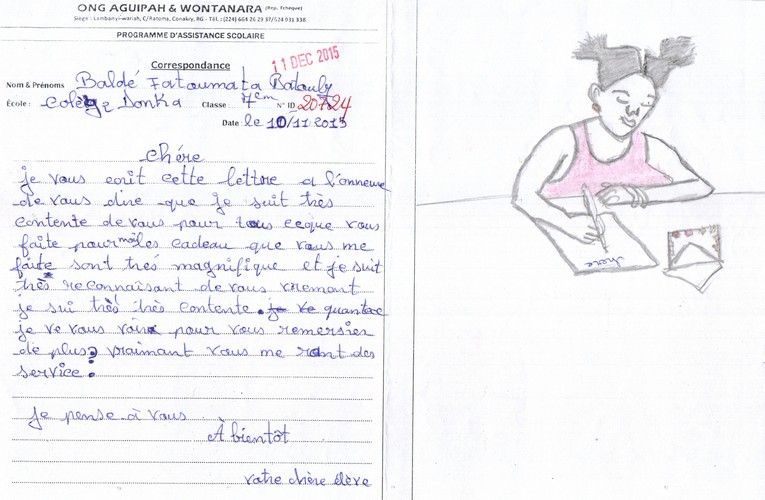 ONG AGUIPAH & WONTANARA (Rep. Tchèque)
Siège : Lambanyi-wariah, C/Ratoma, Conakry, RG - Tél. : (224) 664 26 29 37/624 031 338
PROGRAMME D'ASSISTANCE SCOLAIRE
Correspondance
11 DEC 2015
Nom & Prénoms Baldé Fatoumata Batouly
École : Colège Donka Classe 7em N° ID 20724
Date : le 10/11 2015
chére
je vous ecrit cette lettre a l'onneuve
de vous dire que je suit très
contente de vous pour tous ceque vous
faite pour moi les cadeau que vous me
faite sont très magnifique et je suit
très reconnaisant de vous vremant
je sui très très contente. je ve quantae
je ve vous voire pour vous remersier
de plus? vraimant vous me rant des
service.
je pense à vous
À bientôt
votre chère élève
chere